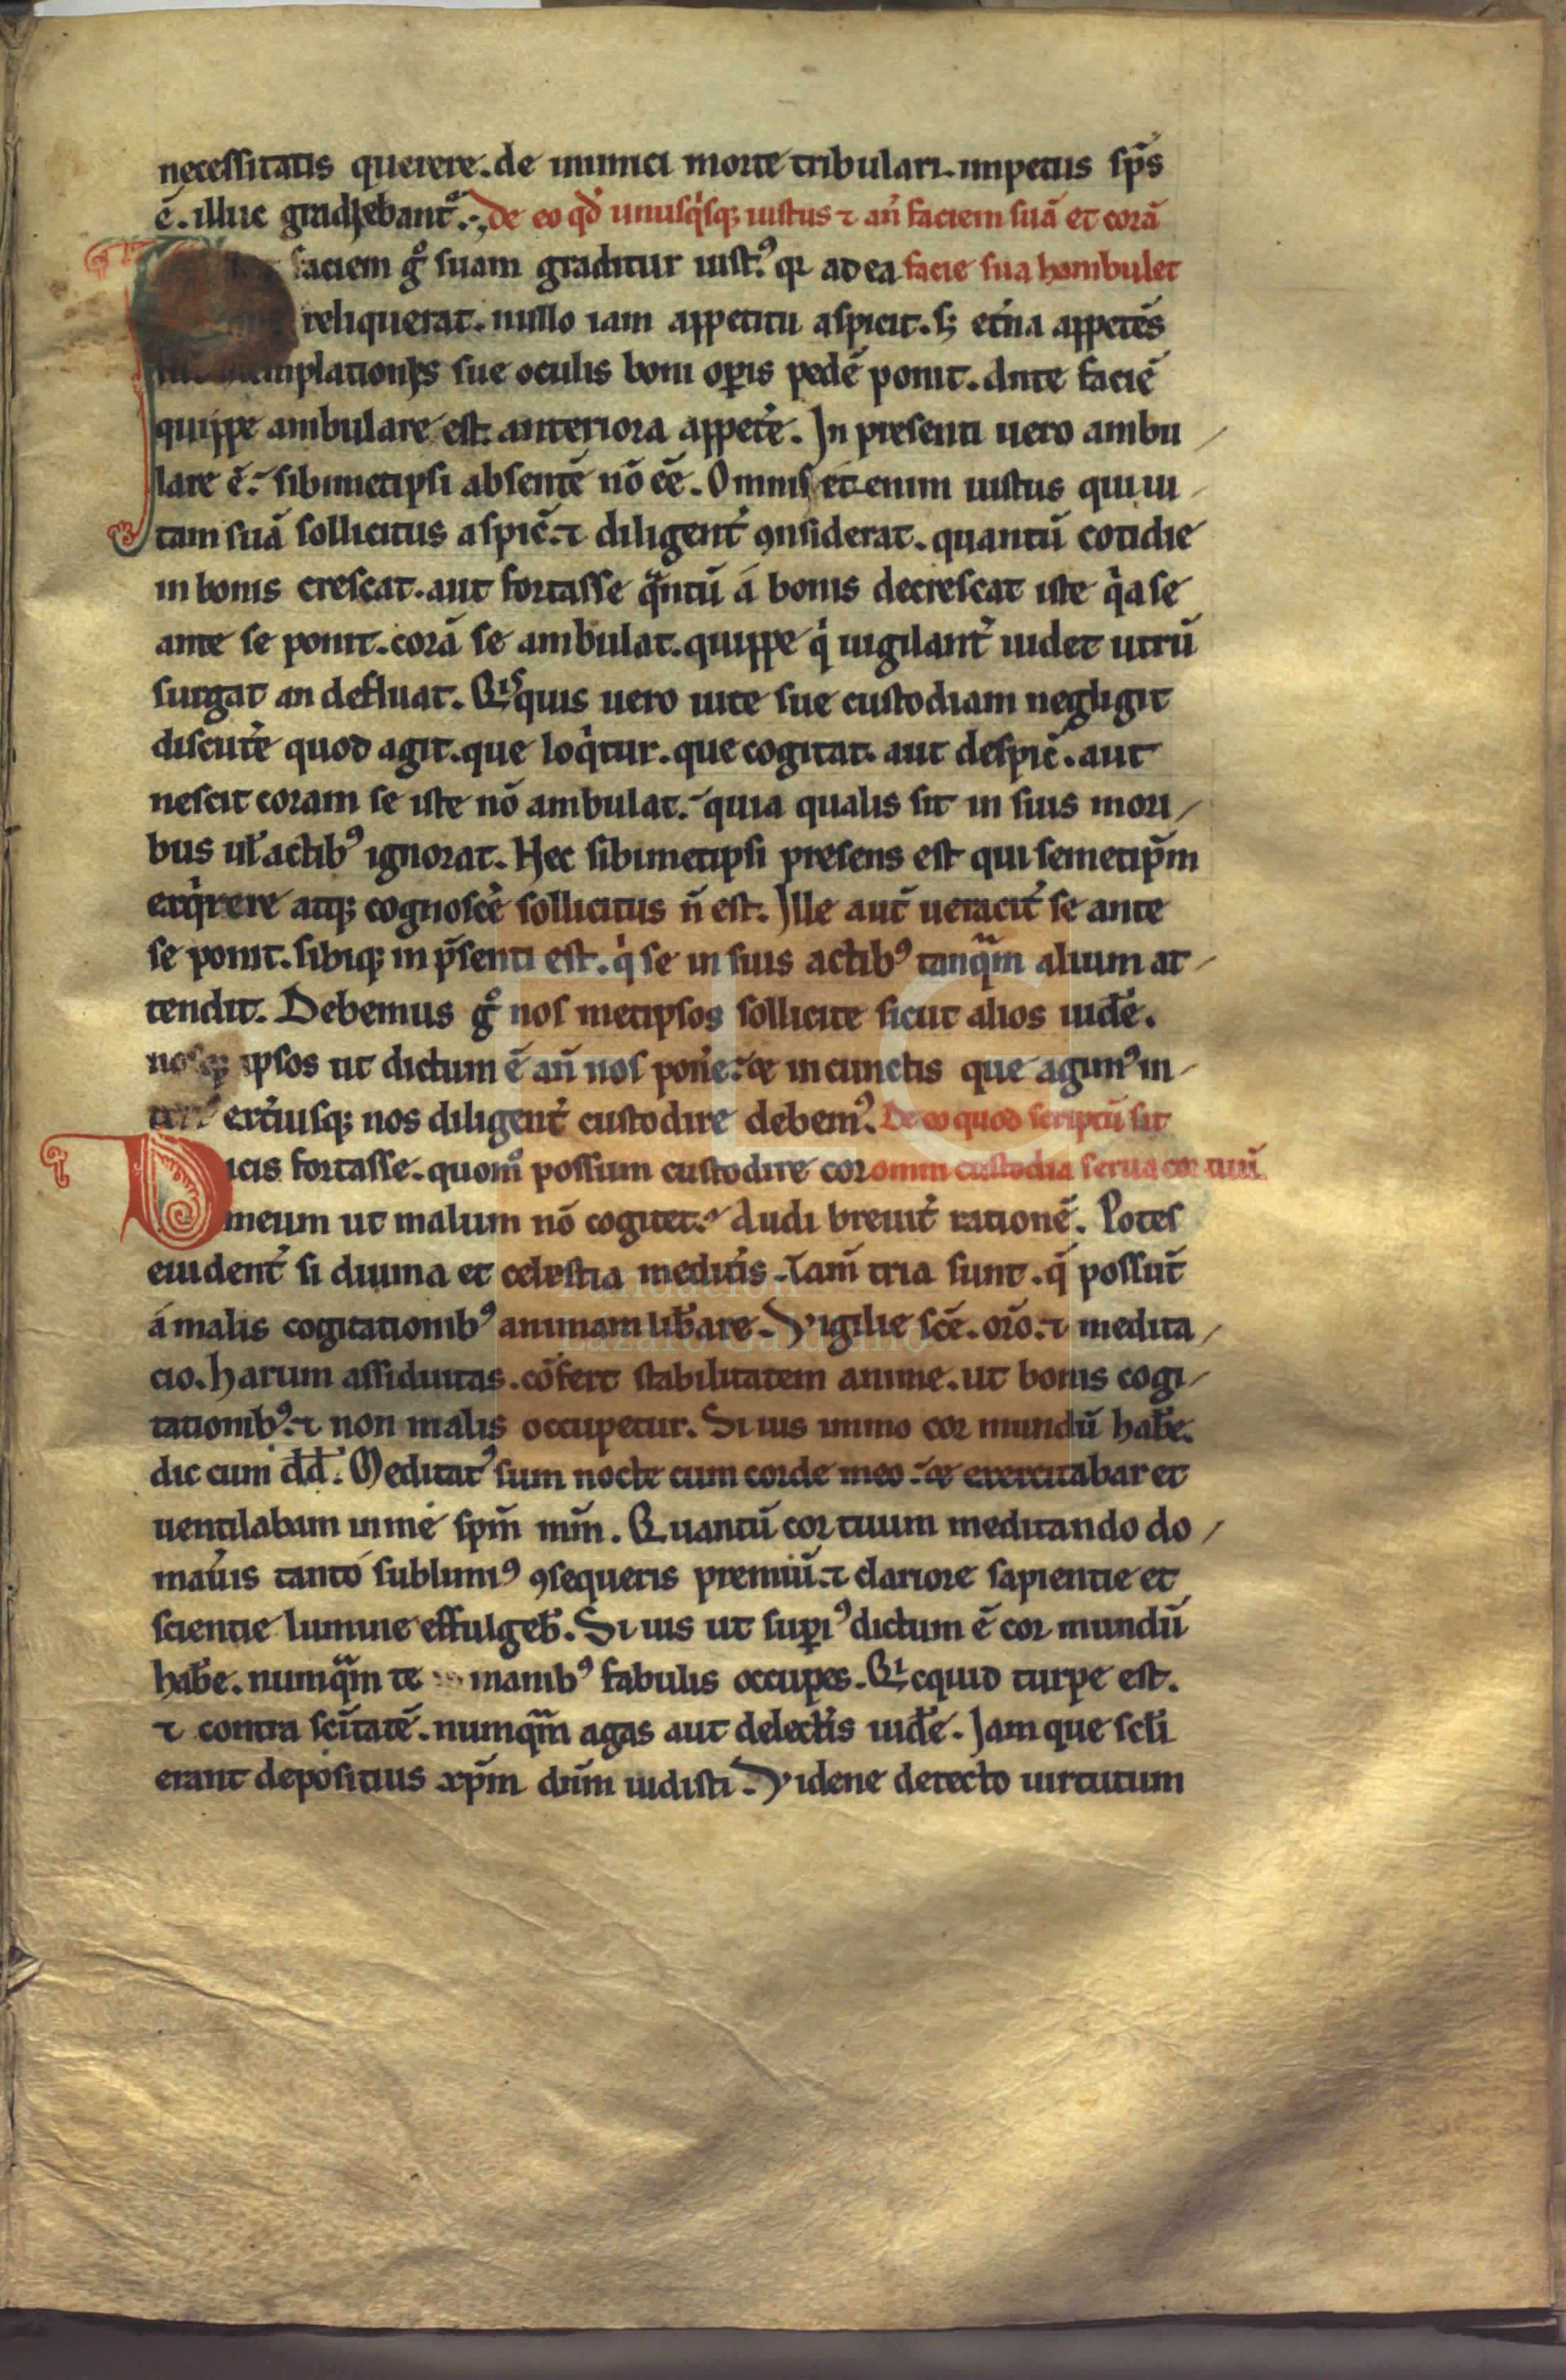 necessitatis querere. de inimici morte tribulari. impetus sp̄s
ē. illuc gradiebant᷒. De eo qd̓ unusq̓sq; iustus ⁊ an̄ faciem suā et corā
faciem gͦ suam graditur iustꝰ. qr ad ea facie sua hambulet
reliquerat. nullo iam appetitu aspicit. s; et̓na appetēs
mplationis sue oculis boni oꝑis pedē ponit. Ante faciē
quippe ambulare est. anteriora appet̓e. In presenti uero ambu
lare ē. sibimetipsi absentē nō eē. Omnis et enim iustus qui ui
tam suā sollicitus aspic̄. ⁊ diligent̓ ꝯsiderat. quantū cotidie
in bonis crescat. aut fortasse qͣntū á bonis decrescat iste q̓a se
ante se ponit. corā se ambulat. quippe q̓ uigilant̓ uidet utrū
surgat an defluat. Qisquis uero uite sue custodiam negligit
discut̓e quod agit. que loq̓tur. que cogitat. aut despic̄. aut
nescit coram se iste nō ambulat. quia qualis sit in suis mori
bus ul̓ actibꝰ ignorat. Hec sibimetipsi presens est qui semetip̄m
exq̓rere atq; cognosc̓e sollicitus n̄ est. Ille aut̄ ueracit̓ se ante
se ponit. sibiq; in p̄senti est. q̓ se in suis actibꝰ tanqͣm alium at
tendit. Debemus gͦ nos metipsos sollicite sicut alios uid̓e.
nosq; ipsos ut dictum ē an̄ nos pon̓e. ⁊ in cunctis que agimꝰ in
ext̓iusq; nos diligent̓ custodire debemꝰ. De eo quod scriptū sit
Dicis fortasse. quomͦ possum custodire cor omni custodia serua cor tuū
meum ut malum nō cogitet. Audi breuit̓ rationē. Potes
euident̓ si diuina et celestia medit̓is. Nam̄ tria sunt. q̄ possūt
á malis cogitationibꝰ animam lib̓are. Vigilie sc̄e. orō. ⁊ medita
cio. harum assiduitas. cōfert stabilitatem anime. ut bonis cogi
tationibꝰ. ⁊ non malis occupetur. Si uis immo cor mundū hab̓e.
dic cum dd̄. Meditatꝰ sum nocte cum corde meo. ⁊ exercitabar et
uentilabam in me sp̄m m̄m. Quantū cor tuum meditando do
mau̓is tanto sublimiꝰ ꝯsequeris premiū. ⁊ clariore sapientie et
scientie lumine effulgeb̓. Si uis ut supiꝰ dictum ē cor mundū
hab̓e. numqͣm te inanibꝰ fabulis occupes. Qicquid turpe est.
⁊ contra sc̄itatē. numqͣm agas aut delect̓is uid̓e. Iam que scͭi
erant depositius xp̄m dn̄m uidisti. Videne detecto uirtutum
Fundación
Lázaro Galdiano